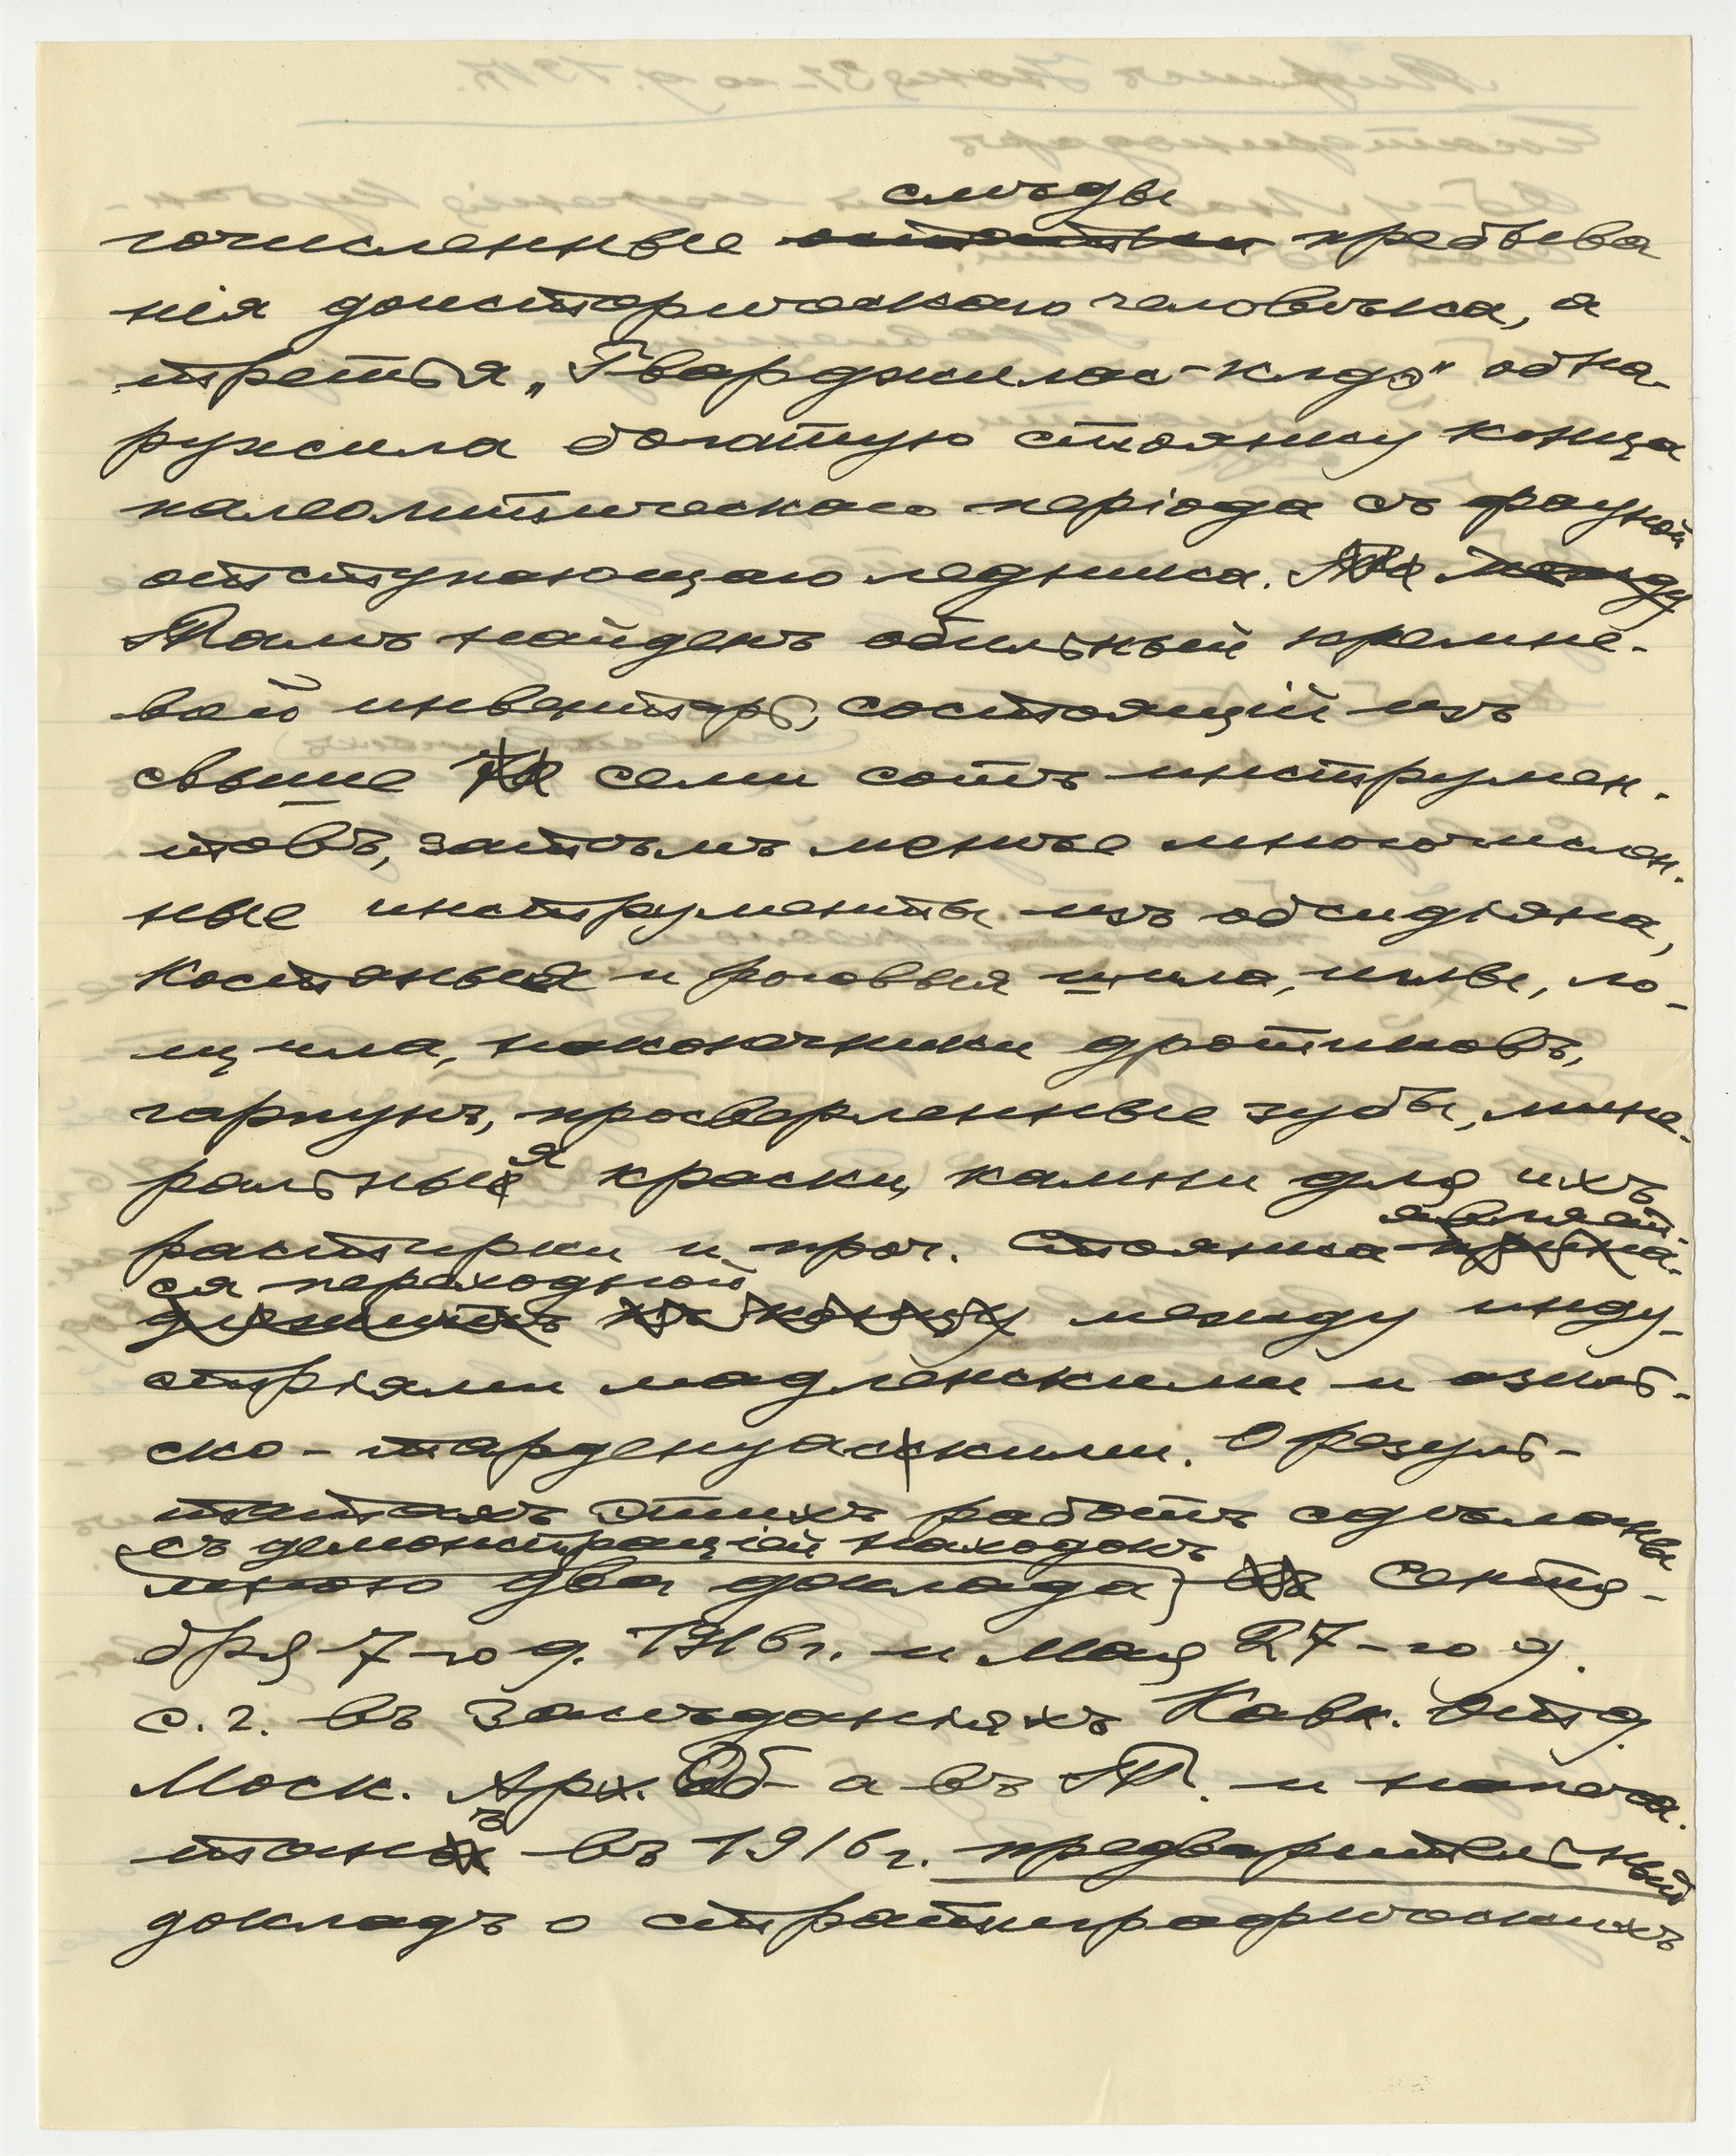 слѣды
гочисленные остатки пребыва
нія доисторическаго человѣка, а
третья „Гварджилас-клдэ" обна-
ружила богатую стоянку конца
палеолитическаго періода съ фауной
отступающаго ледника.
Тамъ найденъ обильный кремне-
вой инвентарь, состоящій изъ
свыше семи сотъ инструмен-
товъ, затѣмъ менѣе многочислен-
ные инструменты изъ обсидіана,
костяныя и роговыя шила, иглы, ло-
щила, наконечники дротиковъ,
гарпунъ, просверленные зубы, мине-
ральныя краски, камни для ихъ
растирки и проч. Стоянка являет-
ся переходной
между инду-
стріями мадленскими и азиль-
ско-тарденуаскими. О резуль-
татахъ этихъ работъ сдѣланы
съ демонстраціей находокъ
мною два доклада Сентя-
бря 7-го д. 1916 г. и Мая 27-го д.
с. г. въ засѣданіяхъ Кавк. Отд.
Моск. Арх. Об-а въ Т. и напеча-
танъ въ 1916 г. предварительный
докладъ о стратиграфическихъ